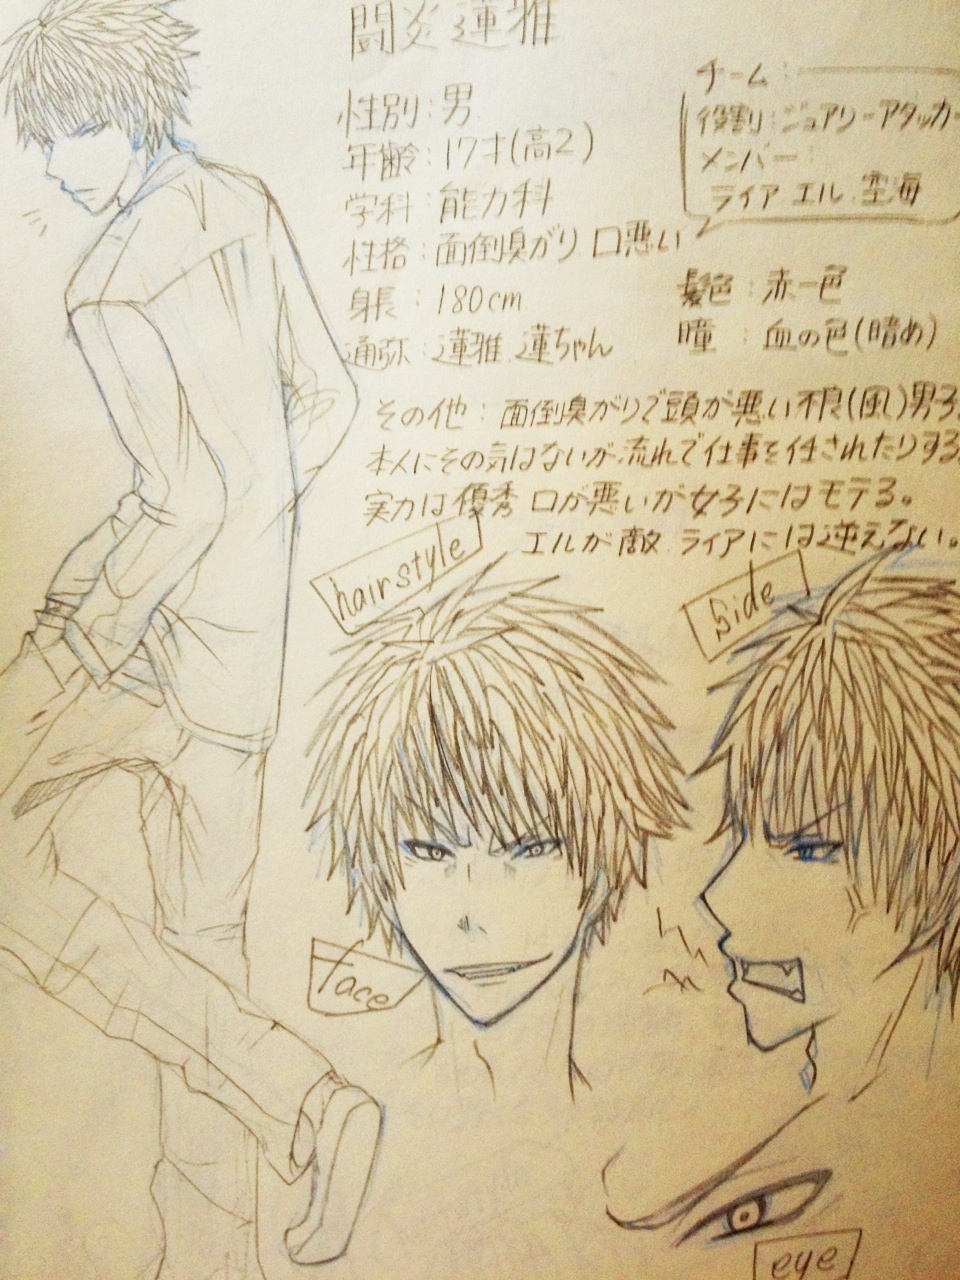 闘炎蓮雅
性別:男
年齢:17才(高2)
学科:能力科
性格:面倒臭がり 口悪い
身長:180cm
通称:蓮雅 蓮ちゃん
チーム:
役割:ジュアリーアタッカー
メンバー:
ライア エル 空海
髪色:赤一色
瞳:血の色(暗め)
その他:面倒臭がりで頭が悪い不良(風)男子。
本人にその気はないが流れで仕事を任されたりする
実力は優秀 口が悪いが女子にはモテる。
エルが敵 ライアには逆えない。
hairstyle
Side
face
eye